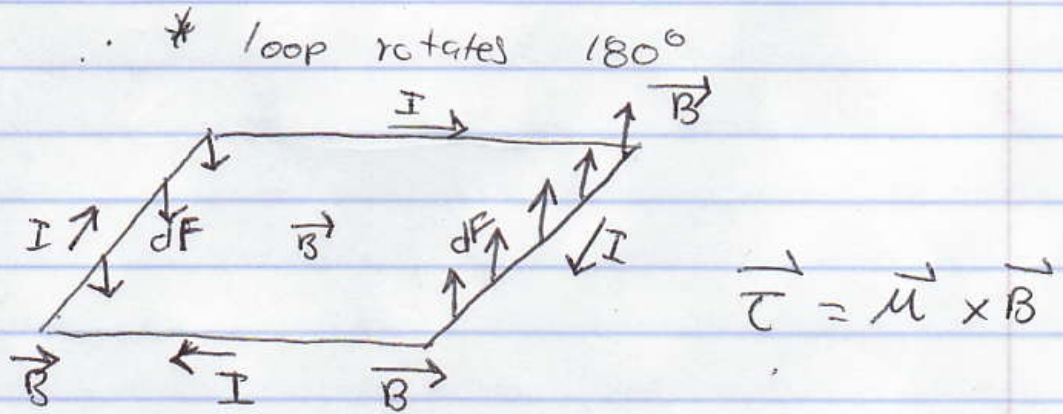 * loop rotates 180°
I B⃗
I dF B⃗ dF I
τ⃗ = μ⃗ × B⃗
B⃗ I B⃗